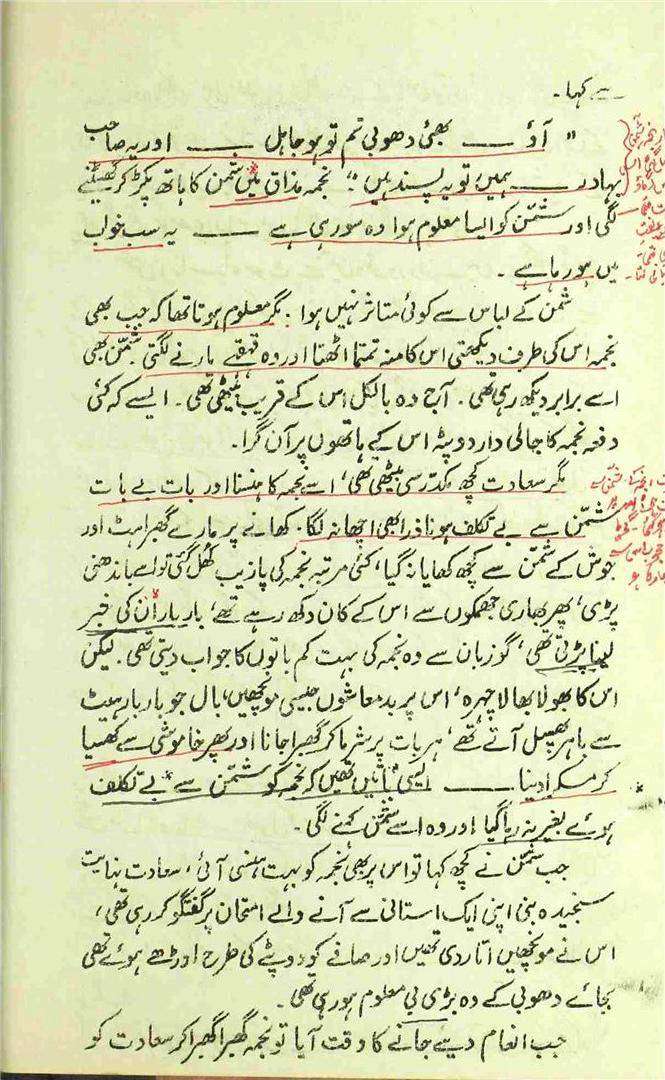 سے کہا۔
" آؤ ـــــ بھئی دھوبی تم تو ہو جاہل ـــــ اور یہ صاحب
بہادر ـــــ ہمیں تو یہ پسند ہیں "۔ نجمہ مذاق میں شمّن کا ہاتھ پکڑ کر گھسیٹنے
لگی اور شمّن کو ایسا معلوم ہوا وہ سو رہی ہے ـــــ یہ سب خواب
میں ہو رہا ہے ۔
شمّن کے لباس سے کوئی متاثر نہیں ہوا ۔ مگر معلوم ہوتا تھا کہ جب بھی
نجمہ اس کی طرف دیکھتی اس کا منہ تمتما اٹھتا اور وہ قہقہے مارنے لگتی ۔ شمّن بھی
اسے برابر دیکھ رہی تھی ۔ آج وہ بالکل اس کے قریب بیٹھی تھی ۔ ایسے کہ کئی
دفعہ نجمہ کا جالی دار دوپٹہ اس کے ہاتھوں پر آن گرا ۔
مگر سعادت کچھ مکدّر سی بیٹھی تھی، اسے نجمہ کا ہنسنا اور بات بے بات
شمّن سے بے تکلف ہونا ذرا بھی اچھا نہ لگا ۔ کھانے پر مارے گھبراہٹ اور
جوش کے شمّن سے کچھ کھایا نہ گیا، کئی مرتبہ نجمہ کی پازیب کھل گئی تو اسے باندھنی
پڑی، پھر بھاری جھمکوں سے اس کے کان دکھ رہے تھے، بار بار ان کی خبر
لینا پڑتی تھی، گو زبان سے وہ نجمہ کی بہت کم باتوں کا جواب دیتی تھی ۔ لیکن
اس کا بھولا بھالا چہرہ، اس پر بدمعاشوں جیسی مونچھیں، بال جو بار بار ہیٹ
سے باہر پھسل آتے تھے، ہر بات پر شرما کر گھبرا جانا اور پھر خاموشی سے کھسیا
کر مسکرا دینا ـــــ ایسی باتیں تھیں کہ نجمہ کو شمّن سے بے تکلف
ہوئے بغیر نہ رہا گیا اور وہ اسے شمّن کہنے لگی ۔
جب شمّن نے کچھ کہا تو اس پر بھی نجمہ کو بہت ہنسی آئی، سعادت نہایت
سنجیدہ بنی اپنی ایک استانی سے آنے والے امتحان پر گفتگو کر رہی تھی،
اس نے مونچھیں اتار دی تھیں اور صافے کو دوپٹے کی طرح اوڑھے ہوئے تھی
بجائے دھوبی کے وہ بڑی بی معلوم ہو رہی تھی ۔
جب انعام دیے جانے کا وقت آیا تو نجمہ گھبرا گھبرا کر سعادت کو